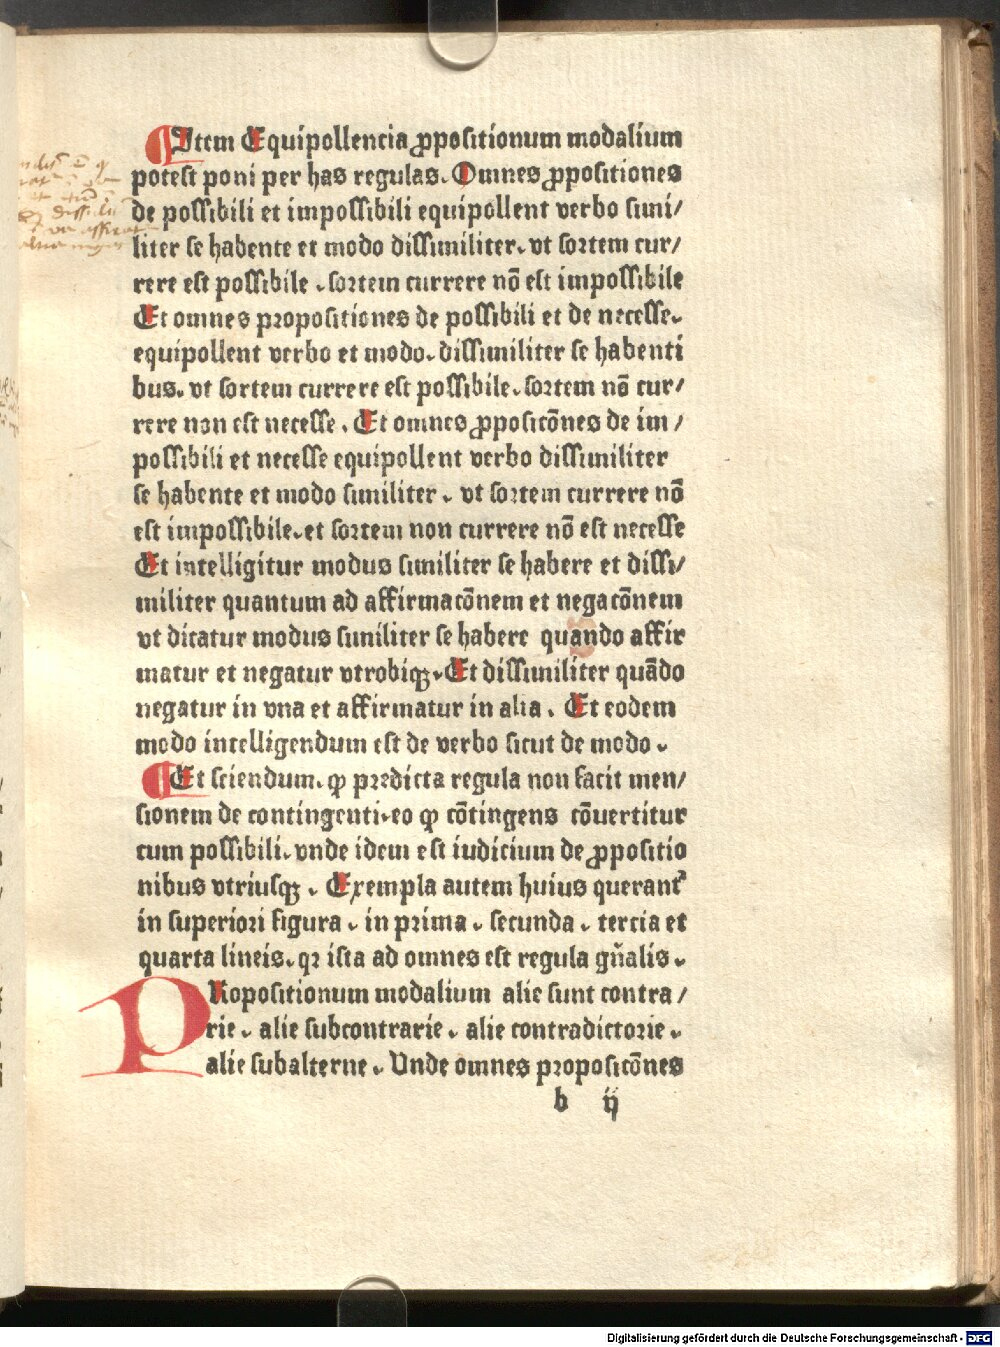 Item Equipollencia ꝓpositionum modalium
potest poni per has regulas. Omnes ꝓpositiones
de possibili et impossibili equipollent verbo simi/
liter se habente et modo dissimiliter. vt sortem cur/
rere est possibile . sortem currere nō est impossibile
Et omnes propositiones de possibili et de necesse.
equipollent verbo et modo. dissimiliter se habenti
bus. vt sortem currere est possibile. sortem nō cur/
rere non est necesse . Et omnes ꝓposicōnes de im /
possibili et necesse equipollent verbo dissimiliter
se habente et modo similiter . vt sortem currere nō
est impossibile. et sortem non currere nō est necesse
Et intelligitur modus similiter se habere et dissi/
militer quantum ad affirmacōnem et negacōnem
vt dicatur modus similiter se habere quando affir
matur et negatur vtrobiqꝫ. Et dissimiliter quādo
negatur in vna et affirmatur in alia . Et eodem
modo intelligendum est de verbo sicut de modo .
Et sciendum. ꝙ predicta regula non facit men/
sionem de contingenti. eo ꝙ cōtingens cōuertitur
cum possibili. vnde idem est iudicium de ꝓpositio
nibus vtriusqꝫ . Exempla autem huius querantᷣ
in superiori figura . in prima . secunda . tercia et
quarta lineis. qꝛ ista ad omnes est regula gn̄alis .
PRopositionum modalium alie sunt contra /
rie . alie subcontrarie . alie contradictorie .
alie subalterne . Unde omnes proposicōnes
b ij
Digitalisierung gefördert durch die Deutsche Forschungsgemeinschaft - DFG